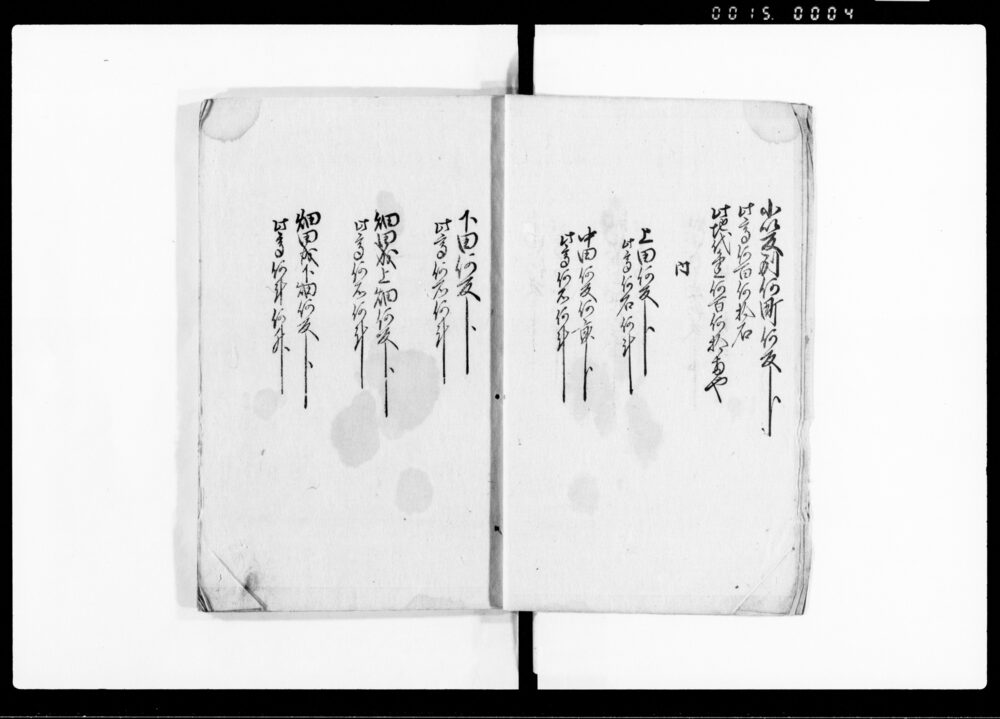 0015. 0004
小以反別何町何反歩
此高何百何拾石
此地代金何百何拾両也
内
上田何反歩
此高何石何斗
中田何反何畝歩
此高何石何斗
下田何反歩
此高何石何斗
畑田成上畑何反歩
此高何石何斗
畑田成下畑何反歩
此高何斗何升